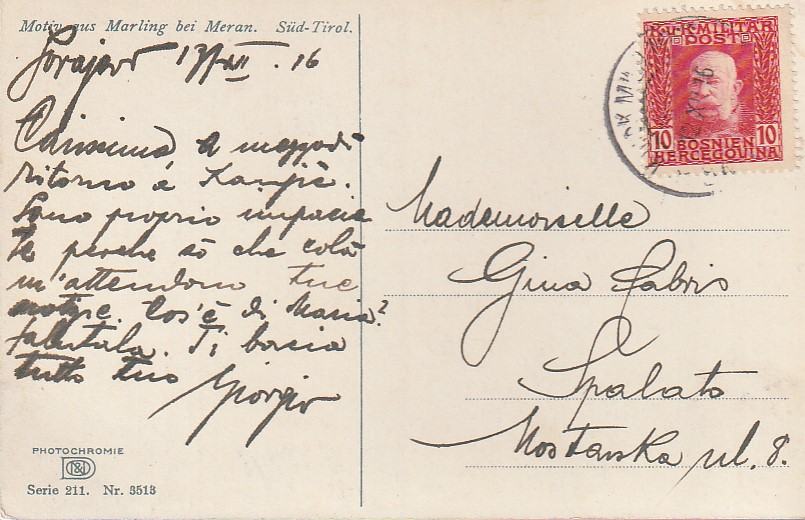 Motiv aus Marling bei Meran. Süd-Tirol.
Sarajevo 17/XII . 16
Carissima a mezzodì
ritorno a
Sono proprio impazien
te perche sò che colà
m'attendono tue
notizie. Cos'è di Maria?
Salutala. Ti bacia
tutto tuo Giorgio
PHOTOCHROMIE
Serie 211. Nr. 3513
K.u.K. MILITÄR
POST
10 10
BOSNIEN
HERCEGOVINA
Mademoiselle
Gina Fabris
Spalato
Mostarska ul. 8.